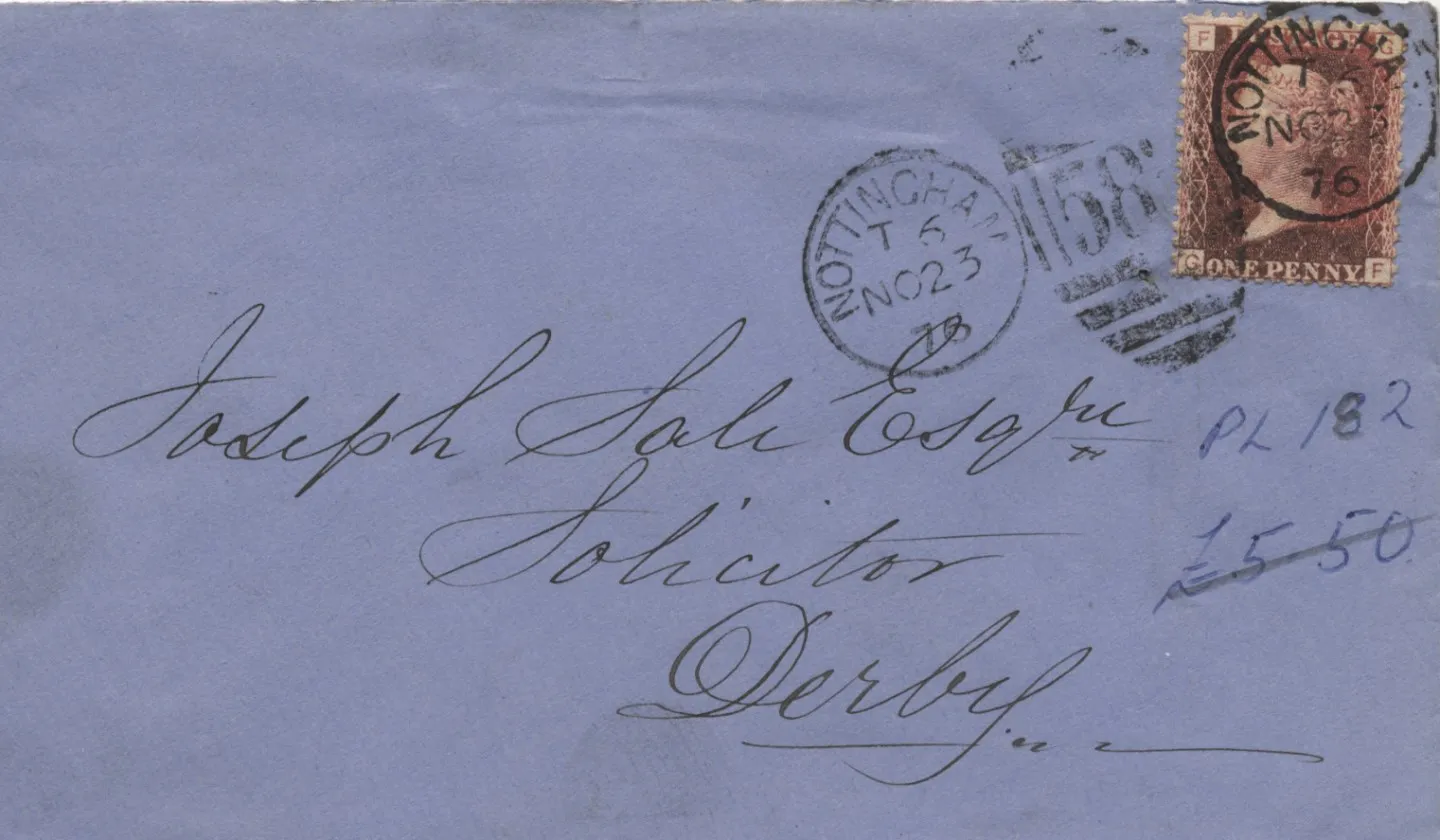 F G
ONE PENNY
G F
NOTTINGHA
T 6
NO 23
76
NOTTINGHAM
T 6
NO 23
76
158
Joseph Sale Esqre
Solicitor
Derby
PL 182
£5 50